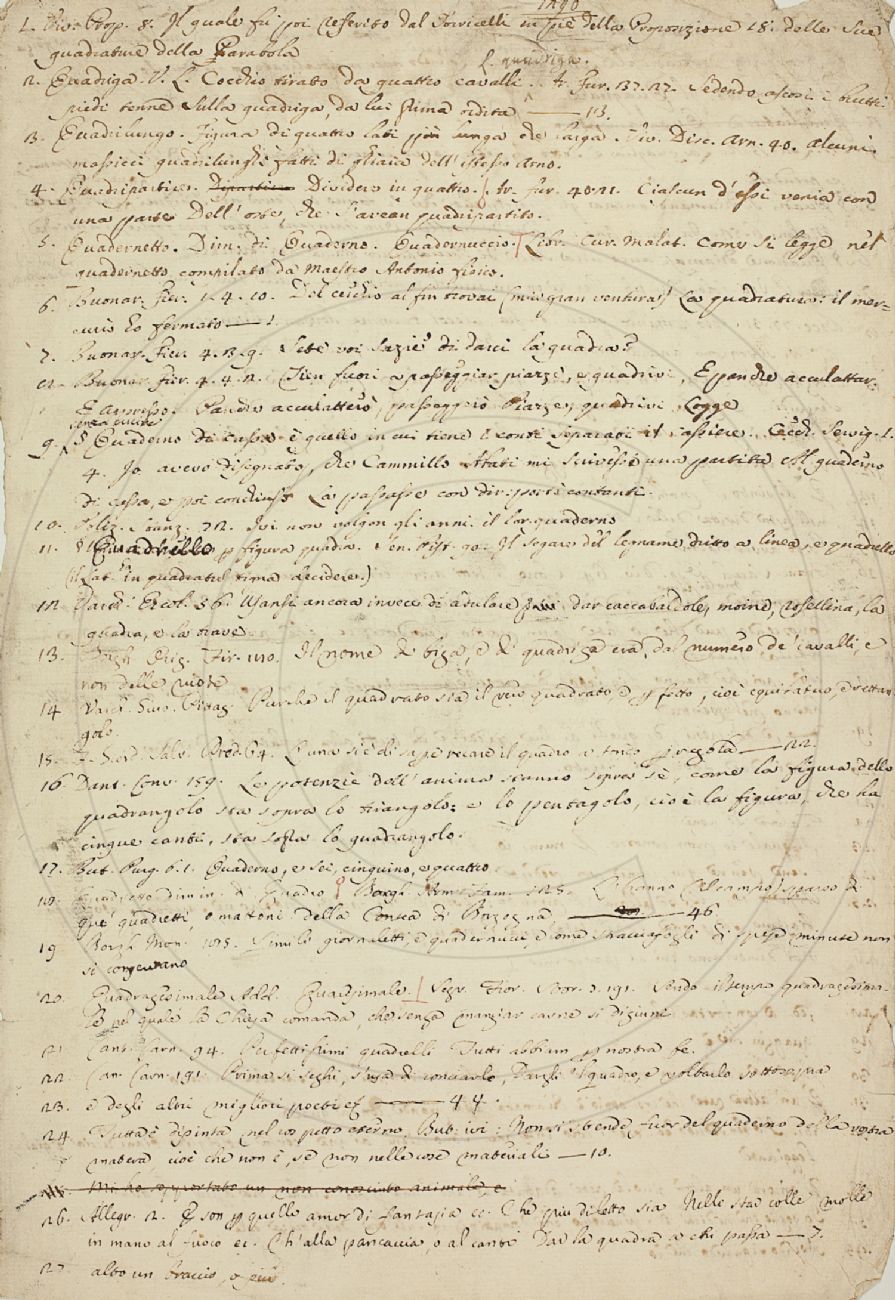 1. Viv. Prop. 8. Il quale fu poi riferito dal Torricelli in piè della Proposizione 18. delle Sue
quadrature della Parabola
quadriga.
2. Quadriga. V. L. Cocchio tirato da quattro cavalli. Ar. Fur. 37. 27. Sedendo ascosi i brutti
piedi tenne sulla quadriga, da lui prima ordita — 13.
3. Quadrilungo. Figura di quattro lati più lunga che larga. Viv. Disc. Arn. 40. alcuni
massicci quadrilunghi fatti di ghiaia dell'istesso Arno.
4. Quadripartire. Dividere in quattro. Ar. Fur. 40. 21. Ciascun d'essi venia con
una parte Dell'oste, che s'avean quadripartito.
5. Quadernetto. Dim. di Quaderno. Quadernuccio. Libr. Cur. Malat. Come si legge nel
quadernetto compilato da Maestro Antonio fisico.
6. Buonar. Fier. 1. 4. 10. Del cerchio al fin trovai (mie gran venture!) La quadratura: il mer=
curio ho fermato — 1.
7. Buonar. Fier. 4. 3. 9. Sete voi sazie di darci la quadra?
Buonar. Fier. 4. 4. 2. Tien fuori a passeggiar piazze, e quadrivi, E panche acculattar.
E appresso. Panche acculatterò, passeggerò Piazze, quadrivi, Logge
9. § Quaderno di cassa è quello in cui tiene i conti separati il cassiere. Cecch. Servig. 1.
4. Io avevo disegnato, che Cammillo Abati mi scrivesse una partita Al quaderno
di cassa, e poi conchiuso La passasse con dir: portò contanti.
10. Poliz. Stanz. 72. Ivi non volgon gli anni il lor quaderno
11. Quadrello p figura quadra. Il segare del legname dritto a linea, e quadrello
(il Lat. in quadratul tima decidere.)
12. Varch. Ercol. 56. Usansi ancora invece di adulare dar caccabaldole, moine, rosellina, la
quadra, e la trave.
13. Borgh. Orig. Fir. Il nome di biga, e di quadriga era dal numero de' cavalli, e
non delle ruote
14. Varch. Giuo. Pittag. Purchè il quadrato sia il vero quadrato, e p fetto, cioè equilatero, e rettan
golo.
15. L'una si è di sape recare il quadro a tondo p regola — 22.
16. Dant. Conv. 159. Le potenzie dell'anima stanno sopra sè, come la figura dello
quadrangolo sta sopra lo triangolo; e lo pentagolo, cioè la figura, che ha
cinque canti, sta sopra lo quadrangolo.
17. But. Purg. 6. 1. Quaderno, e sei, cinquino, e quattro
18. Quadretto dimin. di Quadro. Borgh. Arm. Fam. L'hanno (il campo) sparso di
que' quadretti, o mattoni della Contea di Borgogna, — 46
19. Borgh. Mon. Simili giornaletti, e quadernucci, e come stracciafogli di spese minute non
si conservano
20. Quadragesimale Add. Quaresimale. Segr. Fior. Stor. Sendo il tempo quadragesima-
le nel quale la Chiesa comanda, che senza mangiar carne si digiuni
21. Cant. Carn. 94. Perfettissimi quadrelli Tutti abbiam p nostra fe.
22. Can. Carn. 191. Prima si seghi, s'usa di conciarlo, Dargli 'l quadro, e voltarlo sottosopra
23. e degli altri migliori poeti ec — 44.
24. Tutta è dipinta nel cospetto eterno. But. ivi: Non si stende fuor del quaderno della vostra
matera, cioè che non è, se non nelle cose materiali — 10.
Mi ho rapportato un non conosciuto animale, e
26. Allegr. 2. E son p quelle amor di fantasia ec. Che più diletto sia Nelle sta colle molle
in mano al fuoco ec. Ch'alla pancaccia, o al canto Dar la quadra a chi passa — 7.
27. alto un braccio, o più.